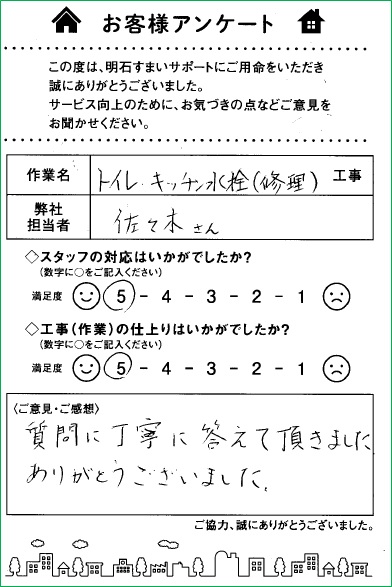 お客様アンケート
この度は、明石すまいサポートにご用命をいただき
誠にありがとうございました。
サービス向上のために、お気づきの点などご意見を
お聞かせください。
作業名 トイレ・キッチン水栓(修理) 工事
弊社
担当者 佐々木さん
◇スタッフの対応はいかがでしたか?
(数字に○をご記入ください)
満足度 5 - 4 - 3 - 2 - 1
◇工事(作業)の仕上りはいかがでしたか?
(数字に○をご記入ください)
満足度 5 - 4 - 3 - 2 - 1
〈ご意見・ご感想〉
質問に丁寧に答えて頂きました
ありがとうございました。
ご協力、誠にありがとうございました。